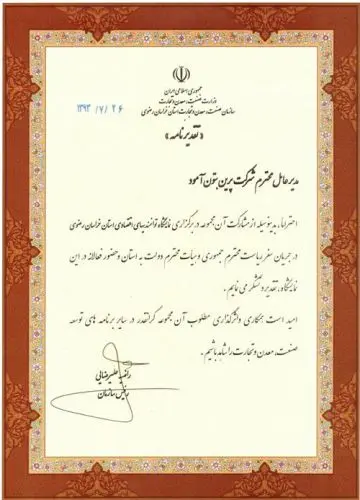 جمهوری اسلامی ایران
وزارت صنعت، معدن و تجارت
سازمان صنعت، معدن و تجارت استان خراسان رضوی
۱۳۹۳/۷/۲۶
«تقدیرنامه»
مدیرعامل محترم شرکت پرین بتون آمود
احتراما، بدینوسیله از مشارکت آن مجموعه در برگزاری نمایشگاه توانمندیهای اقتصادی استان خراسان رضوی
در جریان سفر ریاست محترم جمهوری و هیأت محترم دولت به استان و حضور فعالانه در این
نمایشگاه، تقدیر و تشکر می نمایم.
امید است همکاری و اثرگذاری مطلوب آن مجموعه گرانقدر در سایر برنامه های توسعه
صنعت، معدن و تجارت را شاهد باشیم.
راضیه علیرضایی
رئیس سازمان